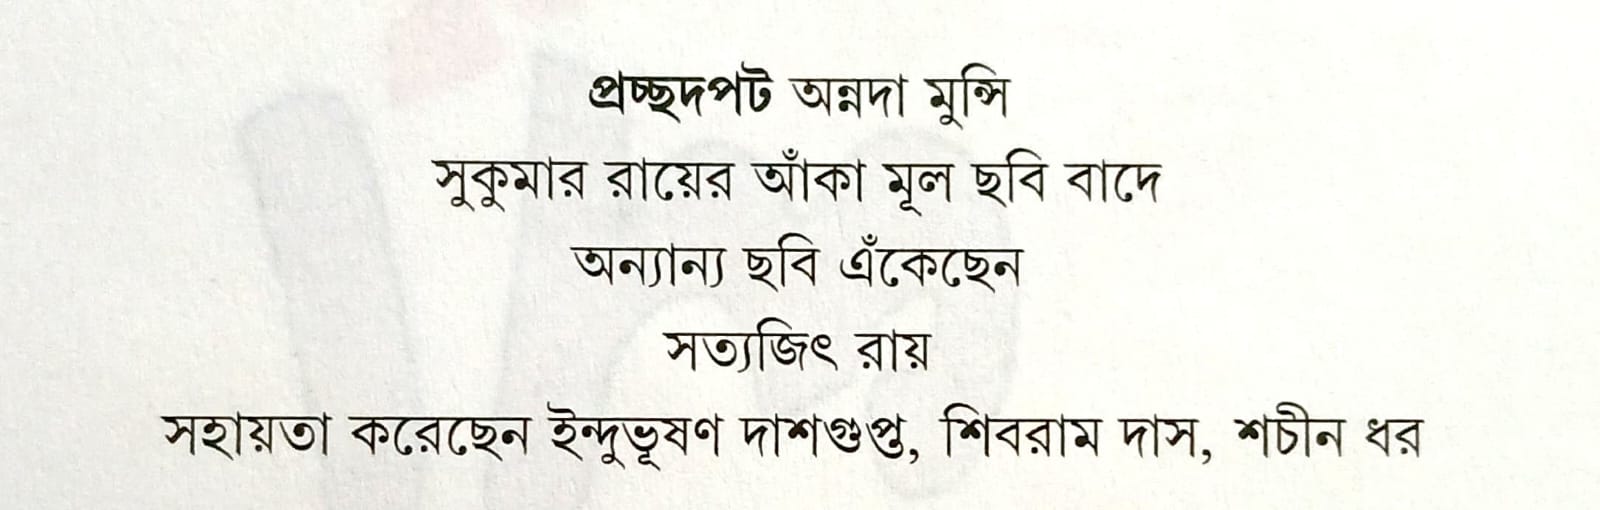 প্রচ্ছদপট অন্নদা মুন্সি
সুকুমার রায়ের আঁকা মূল ছবি বাদে
অন্যান্য ছবি এঁকেছেন
সত্যজিৎ রায়
সহায়তা করেছেন ইন্দুভূষণ দাশগুপ্ত, শিবরাম দাস, শচীন ধর